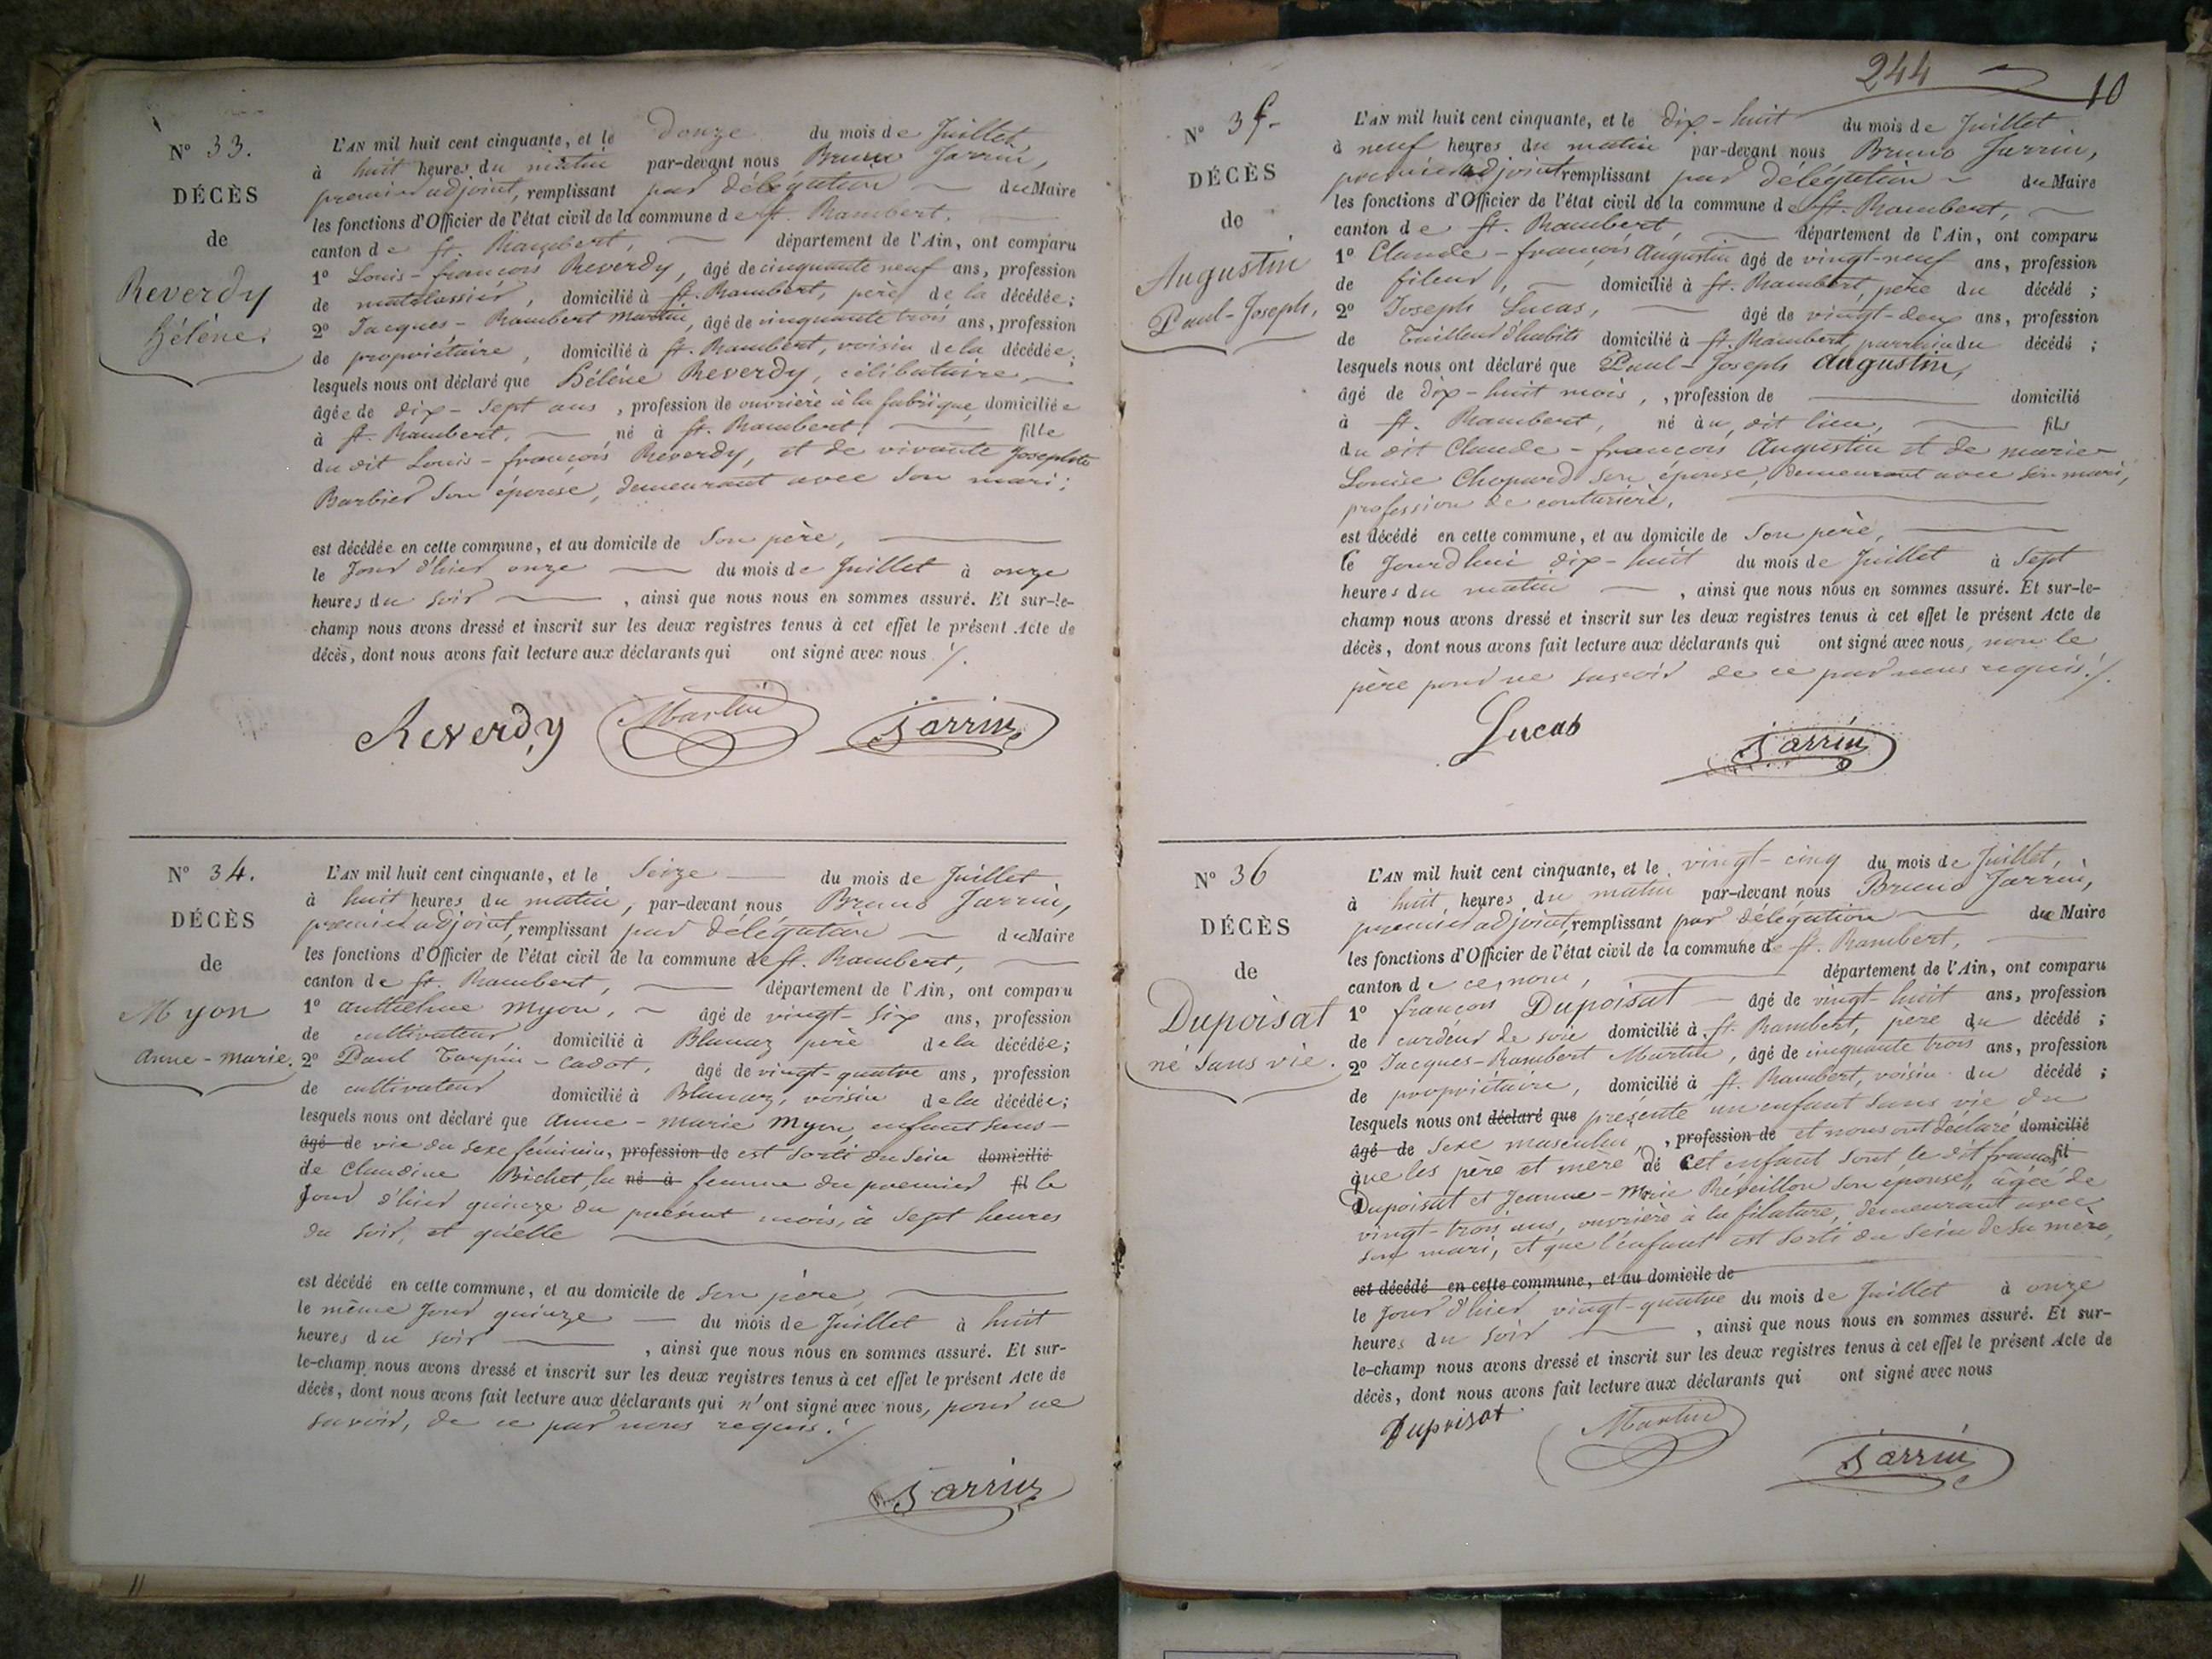 N° 33.
DÉCÈS
de
Reverdy
Hélène.
L'AN mil huit cent cinquante, et le douze du mois de Juillet,
à huit heures du matin par-devant nous Bruno Jarrin,
premier adjoint, remplissant par délégation du Maire
les fonctions d'Officier de l'état civil de la commune de St. Rambert,
canton de St. Rambert, département de l'Ain, ont comparu
1° Louis-françois Reverdy, âgé de cinquante neuf ans, profession
de matelassier, domicilié à St. Rambert, père de la décédée;
2° Jacques-Rambert Martin, âgé de cinquante trois ans, profession
de propriétaire, domicilié à St. Rambert, voisin de la décédée;
lesquels nous ont déclaré que Hélène Reverdy, célibataire
âgée de dix-sept ans, profession de ouvrière à la fabrique, domiciliée
à St. Rambert, né à St. Rambert, fille
du dit Louis-françois Reverdy, et de vivante Josephte
Barbier son épouse, demeurant avec son mari;
est décédée en cette commune, et au domicile de son père,
le Jour d'hier onze du mois de Juillet à onze
heures du soir, ainsi que nous nous en sommes assuré. Et sur-le-
champ nous avons dressé et inscrit sur les deux registres tenus à cet effet le présent Acte de
décès, dont nous avons fait lecture aux déclarants qui ont signé avec nous ./.
Reverdy Martin Jarrin
N° 34.
DÉCÈS
de
Myon
Anne-Marie.
L'AN mil huit cent cinquante, et le Seize du mois de Juillet
à huit heures du matin, par-devant nous Bruno Jarrin,
premier adjoint, remplissant par délégation du Maire
les fonctions d'Officier de l'état civil de la commune de St. Rambert,
canton de St. Rambert, département de l'Ain, ont comparu
1° anthelme Myon, âgé de vingt-six ans, profession
de cultivateur, domicilié à Blanaz père de la décédée;
2° Paul Torpin-Cadot, âgé de vingt-quatre ans, profession
de cultivateur domicilié à Blanaz, voisin de la décédée;
lesquels nous ont déclaré que anne-marie Myon enfant sans-
âgé de vie du sexe féminin, profession de est sorti du sein domicilié
de Claudine Bichet, la né à femme du premier fil le
Jour d'hier quinze du présent mois, à sept heures
du soir, et qu'elle
est décédé en cette commune, et au domicile de son père,
le même Jour quinze du mois de Juillet à huit
heures du soir, ainsi que nous nous en sommes assuré. Et sur-
le-champ nous avons dressé et inscrit sur les deux registres tenus à cet effet le présent Acte de
décès, dont nous avons fait lecture aux déclarants qui n'ont signé avec nous, pour ne
savoir, de ce par nous requis ./.
Jarrin
244
10
N° 35
DÉCÈS
de
Augustin
Paul-Joseph,
L'AN mil huit cent cinquante, et le dix-huit du mois de Juillet
à neuf heures du matin par-devant nous Bruno Jarrin,
premier adjoint remplissant par délégation du Maire
les fonctions d'Officier de l'état civil de la commune de St. Rambert,
canton de St. Rambert, département de l'Ain, ont comparu
1° Claude-françois Augustin âgé de vingt-neuf ans, profession
de fileur, domicilié à St. Rambert, père du décédé;
2° Joseph Lucas, âgé de vingt-deux ans, profession
de Tailleur d'habits domicilié à St. Rambert, parrain du décédé;
lesquels nous ont déclaré que Paul-Joseph Augustin,
âgé de dix-huit mois, profession de domicilié
à St. Rambert, né au dit lieu, fils
du dit Claude-françois Augustin et de marie-
Louise Chopard son épouse, demeurant avec son mari,
profession de couturière,
est décédé en cette commune, et au domicile de son père,
le Jourd'hui dix-huit du mois de Juillet à sept
heures du matin, ainsi que nous nous en sommes assuré. Et sur-le-
champ nous avons dressé et inscrit sur les deux registres tenus à cet effet le présent Acte de
décès, dont nous avons fait lecture aux déclarants qui ont signé avec nous, non le
père pour ne savoir de ce par nous requis ./.
Lucas Jarrin
N° 36
DÉCÈS
de
Dupoisat
né sans vie.
L'AN mil huit cent cinquante, et le vingt-cinq du mois de Juillet,
à huit heures du matin par-devant nous Bruno Jarrin,
premier adjoint, remplissant par délégation du Maire
les fonctions d'Officier de l'état civil de la commune de St. Rambert,
canton de ce nom, département de l'Ain, ont comparu
1° françois Dupoisat âgé de vingt-huit ans, profession
de cardeur de soie domicilié à St. Rambert, père du décédé;
2° Jacques-Rambert Martin, âgé de cinquante trois ans, profession
de propriétaire, domicilié à St. Rambert, voisin du décédé;
lesquels nous ont déclaré que présenté un enfant sans vie du
âgé de sexe masculin, profession de et nous ont déclaré domicilié
que les père et mère de cet enfant sont le dit françois fil
Dupoisat et Jeanne-Marie Réveillon son épouse, âgée de
vingt-trois ans, ouvrière à la filature, demeurant avec
son mari, et que l'enfant est sorti du sein de sa mère,
est décédé en cette commune, et au domicile de
le Jour d'hier vingt-quatre du mois de Juillet à onze
heures du soir, ainsi que nous nous en sommes assuré. Et sur-
le-champ nous avons dressé et inscrit sur les deux registres tenus à cet effet le présent Acte de
décès, dont nous avons fait lecture aux déclarants qui ont signé avec nous
Dupoisat Martin Jarrin